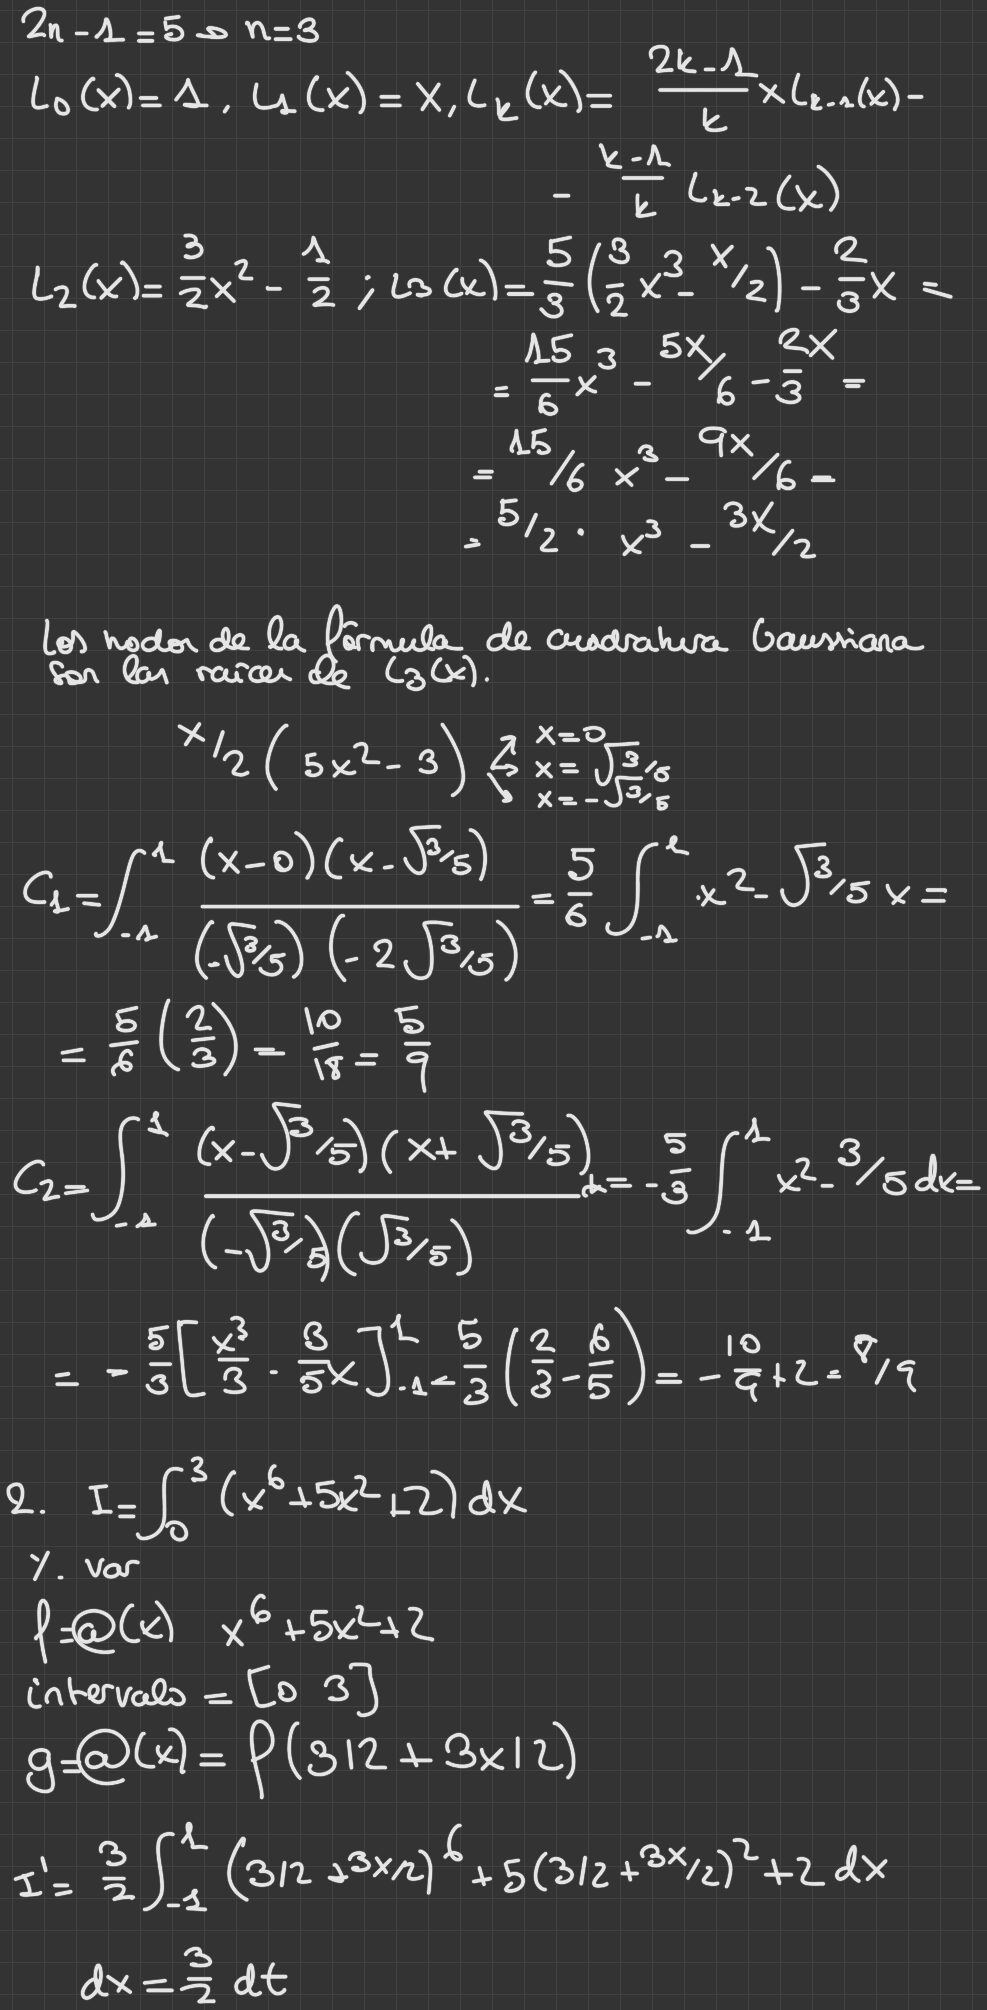 2n-1=5 → n=3
L₀(x)=1, L₁(x)=x, Lₖ(x)= (2k-1)/k x Lₖ₋₁(x) -
- (k-1)/k Lₖ₋₂(x)
L₂(x)= 3/2 x² - 1/2 ; L3(x)= 5/3 (3/2 x³ - x/2) - 2/3 x =
= 15/6 x³ - 5x/6 - 2x/3 =
= 15/6 x³ - 9x/6 =
= 5/2 · x³ - 3x/2
Los nodos de la fórmula de cuadratura Gaussiana
son las raíces de L₃(x).
x/2 (5x² - 3) x=0
x=√3/5
x=-√3/5
C₁= ∫₋₁¹ (x-0)(x-√3/5) / (-√3/5)(-2√3/5) = 5/6 ∫₋₁¹ x² - √3/5 x =
= 5/6 (2/3) = 10/18 = 5/9
C₂= ∫₋₁¹ (x-√3/5)(x+√3/5) / (-√3/5)(√3/5) = -5/3 ∫₋₁¹ x² - 3/5 dx =
= -5/3 [x³/3 - 3/5 x]₋₁¹ = -5/3 (2/3 - 6/5) = -10/9 + 2 = 8/9
2. I= ∫₀³ (x⁶+5x²+2) dx
%. var
f=@(x) x⁶+5x²+2
intervalo = [0 3]
g=@(x) = f(3/2 + 3x/2)
I'= 3/2 ∫₋₁¹ (3/2 + 3x/2)⁶ + 5(3/2 + 3x/2)² + 2 dx
dx = 3/2 dt